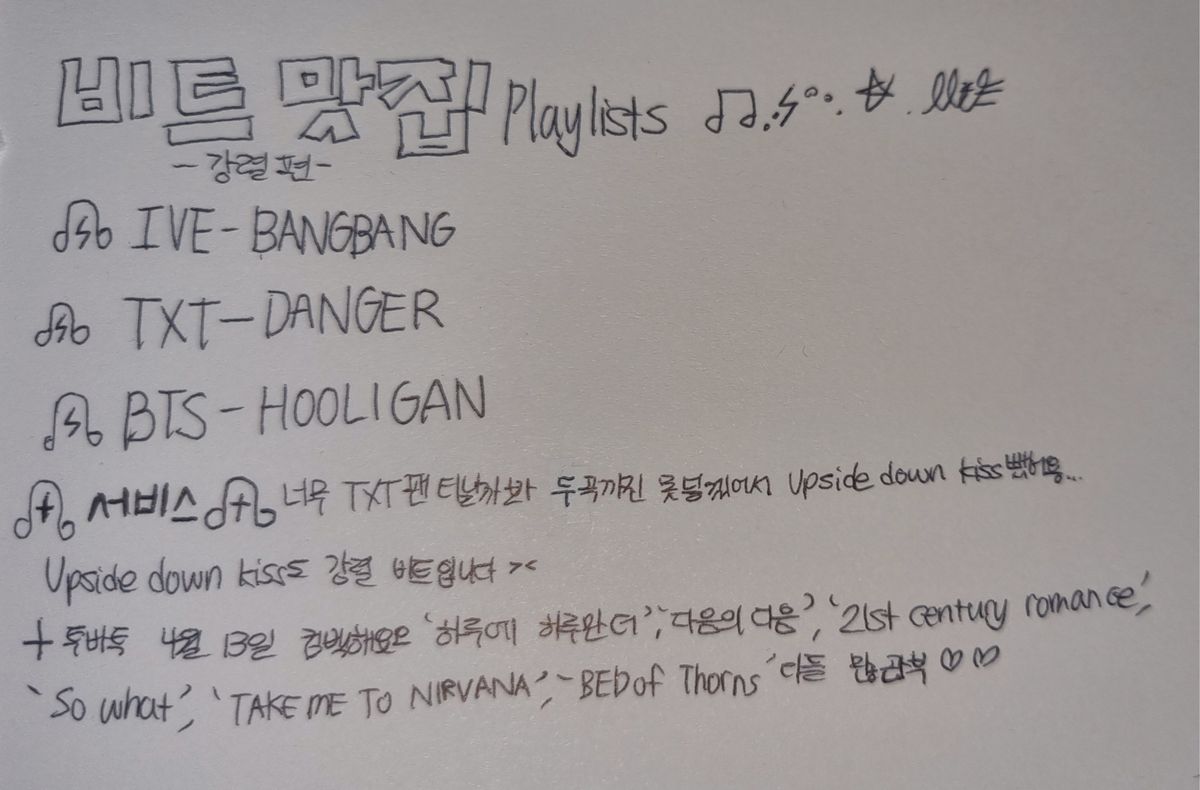 비트 맛집 Playlists
-강렬편-
IVE-BANGBANG
TXT-DANGER
BTS-HOOLIGAN
서비스 너무 TXT팬 티날까봐 두곡까진 못넣겠어서 Upside down kiss뺐어용...
Upside down kiss도 강렬 비트입니다 ><
+ 투바투 4월 13일 컴백해요은 '하루에 하루만 더', '다음의 다음', '21st century romance',
'So what', 'TAKE ME TO NIRVANA', 'BED of Thorns' 다들 많관부 ♡♡